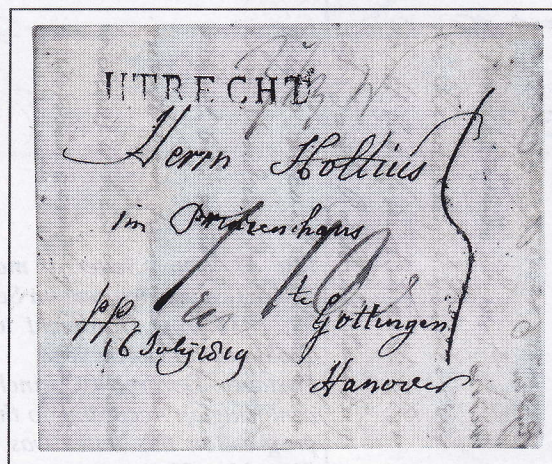 UTRECHT
Herrn Holtius
im Prinzenhaus
te Gottingen
pp
16 July 1819
Hanover